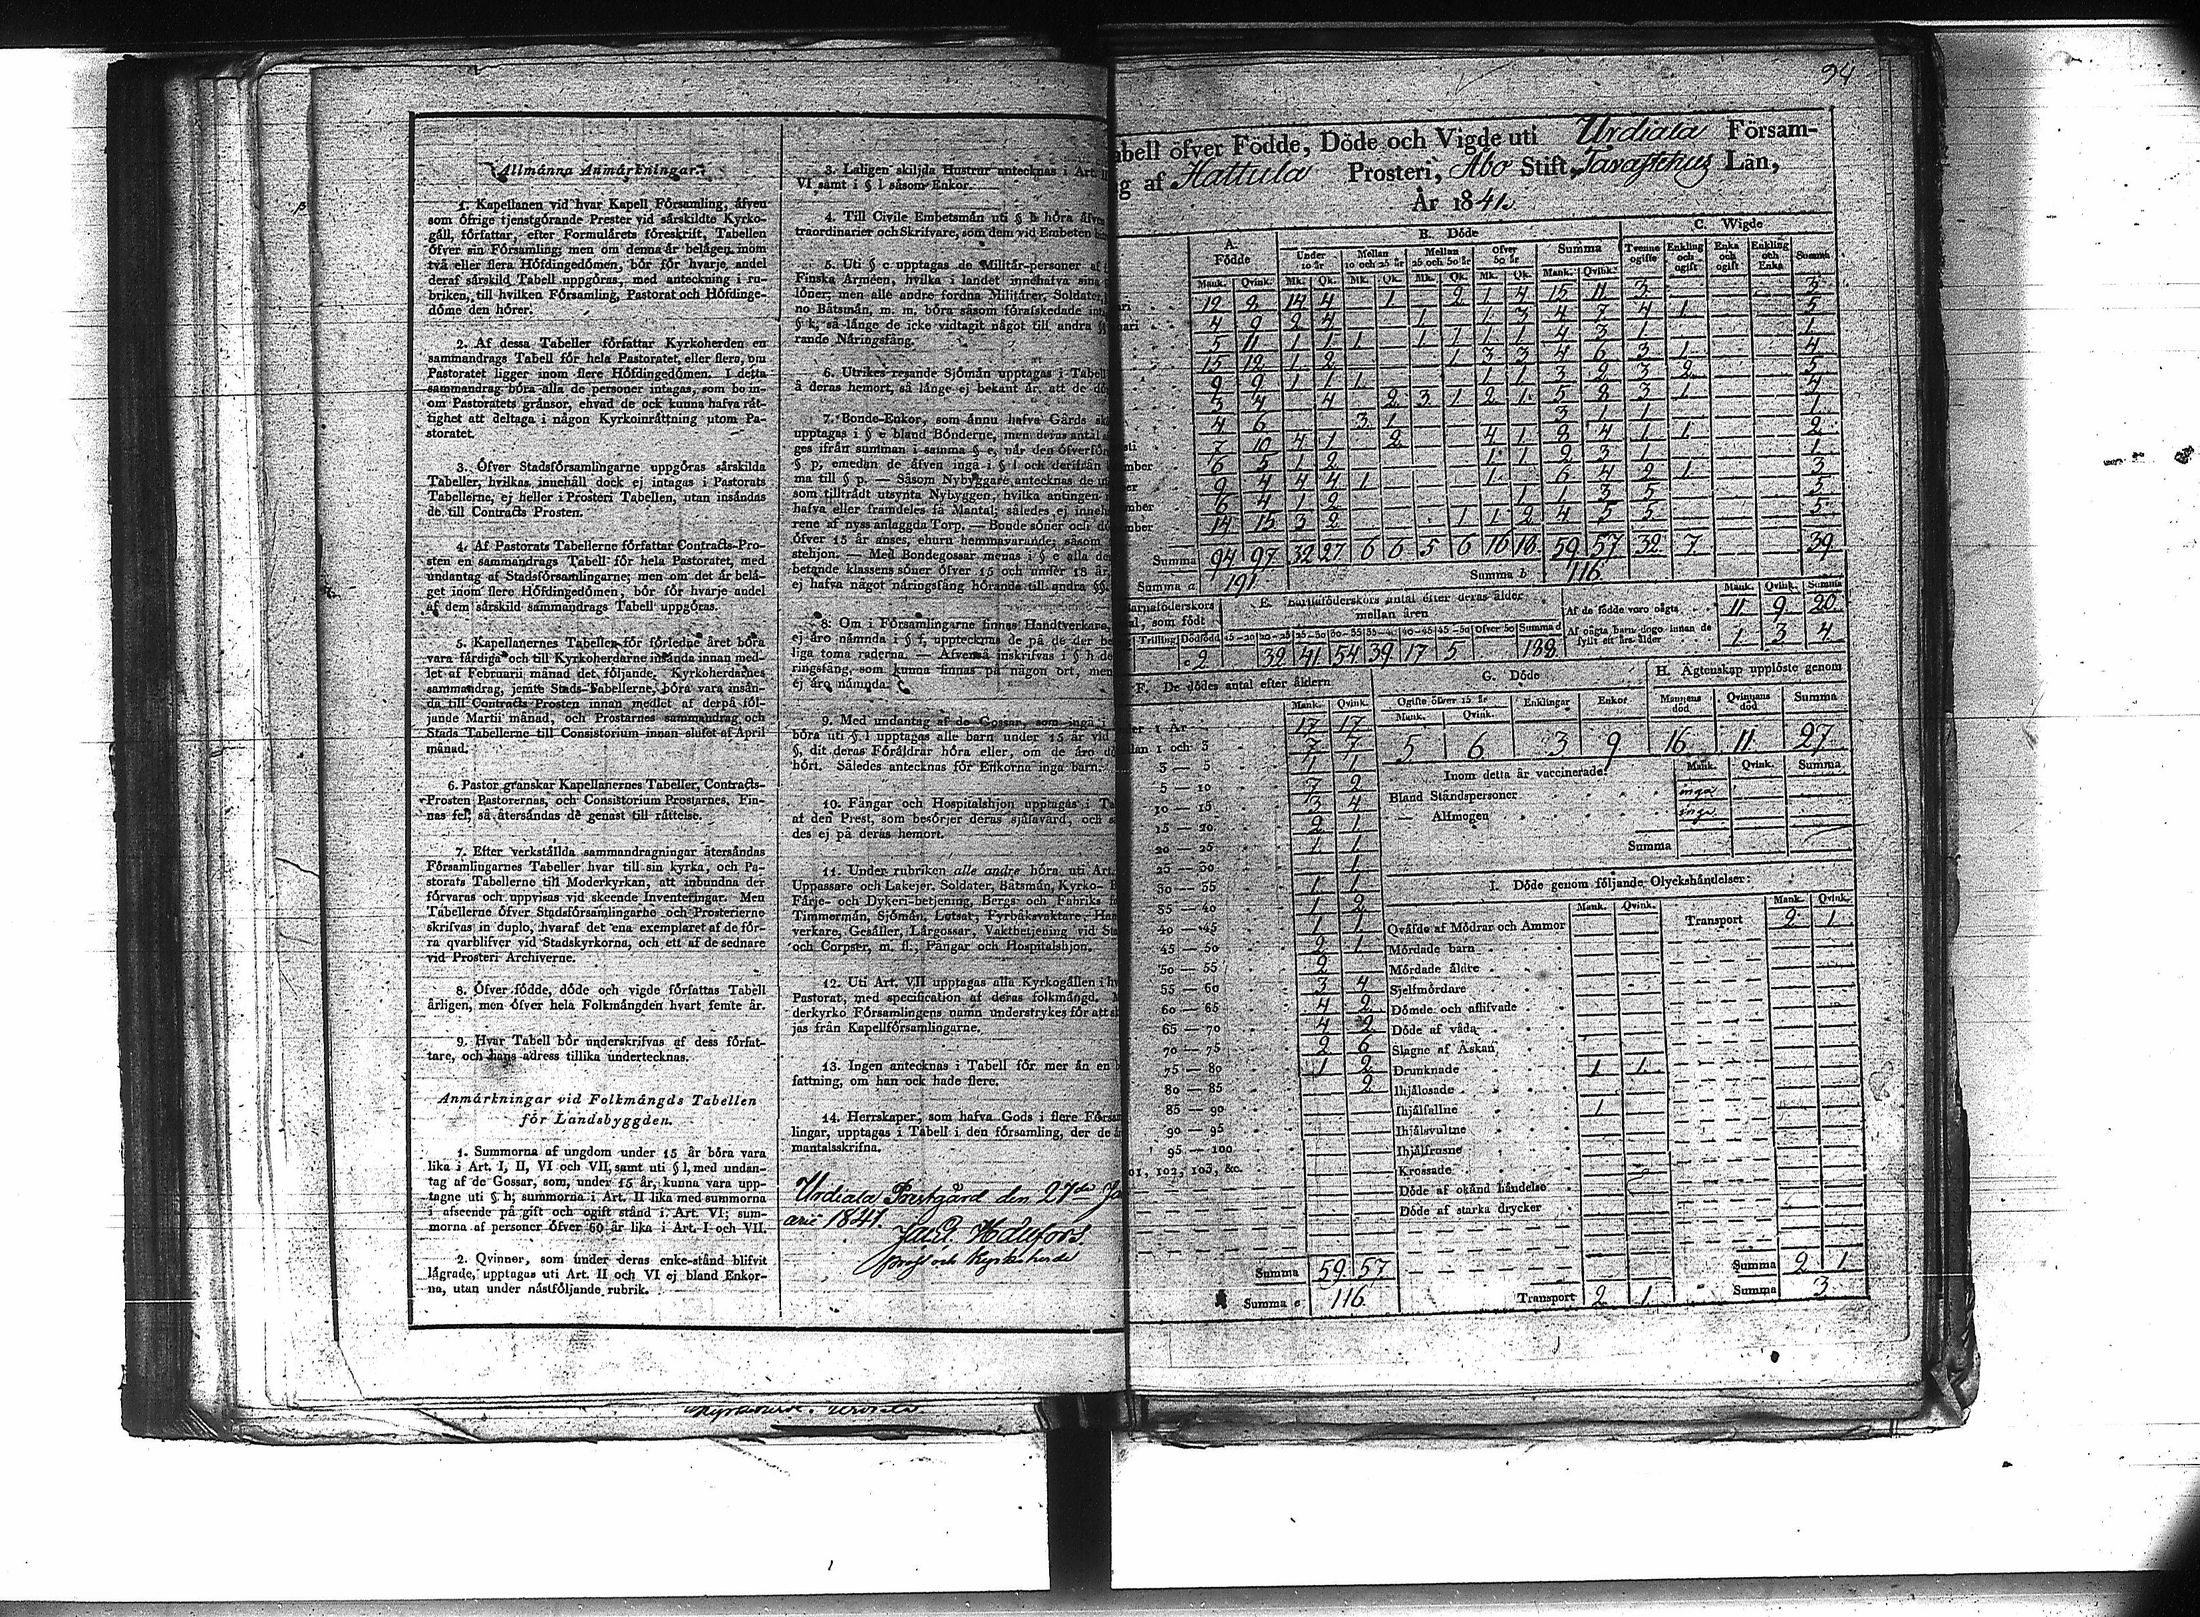 Allmänna Anmärkningar.
1. Kapellanen vid hvar Kapell Församling, äfven
som öfrige tjenstgörande Prester vid särskildte Kyrko-
gäll, författar, efter Formulärets föreskrift, Tabellen
öfver sin Församling; men om denna är belägen inom
två eller flera Höfdingedömen, bör för hvarje andel
deraf särskild Tabell uppgöras, med anteckning i ru-
briken, till hvilken Församling, Pastorat och Höfdinge-
döme den hörer.
2. Af dessa Tabeller författar Kyrkoherden en
sammandrags Tabell för hela Pastoratet, eller flere, om
Pastoratet ligger inom flere Höfdingedömen. I detta
sammandrag böra alla de personer intagas, som bo in-
om Pastoratets gränsor, ehvad de ock kunna hafva rät-
tighet att deltaga i någon Kyrkoinrättning utom Pa-
storatet.
3. Öfver Stadsförsamlingarne uppgöras särskilda
Tabeller, hvilkas innehåll dock ej intages i Pastorats
Tabellerne, ej heller i Prosteri Tabellen, utan insändas
de till Contracts Prosten.
4. Af Pastorats Tabellerne författar Contracts-Pro-
sten en sammandrags Tabell för hela Pastoratet, med
undantag af Stadsförsamlingarne; men om det är belä-
get inom flere Höfdingedömen, bör för hvarje andel
af dem särskild sammandrags Tabell uppgöras.
5. Kapellanernes Tabeller för förledne året böra
vara färdiga och till Kyrkoherdarne insända innan med-
let af Februarii månad det följande. Kyrkoherdarnes
sammandrag, jemte Stads-Tabellerne, böra vara insän-
da till Contracts Prosten innan medlet af derpå föl-
jande Martii månad, och Prostarnes sammandrag och
Stads Tabellerne till Consistorium innan slutet af April
månad.
6. Pastor granskar Kapellanernes Tabeller, Contracts-
Prosten Pastorernas, och Consistorium Prostarnes. Fin-
nas fel, så återsändas de genast till rättelse.
7. Efter verkställda sammandragningar återsändas
Församlingarnes Tabeller hvar till sin kyrka, och Pa-
storats Tabellerne till Moderkyrkan, att inbundna der
förvaras och uppvisas vid skeende Inventeringar. Men
Tabellerne öfver Stadsförsamlingarne och Prosterierne
skrifvas in duplo, hvaraf det ena exemplaret af de för-
ra qvarblifver vid Stadskyrkorna, och ett af de sednare
vid Prosteri Archiverne.
8. Öfver födde, döde och vigde författas Tabell
årligen, men öfver hela Folkmängden hvart femte år.
9. Hvar Tabell bör underskrifvas af dess författ-
tare, och hans adress tillika undertecknas.
Anmärkningar vid Folkmängds Tabellen
för Landsbyggden.
1. Summorna af ungdom under 15 år böra vara
lika i Art. I, II, VI och VII, samt uti § l, med undan-
tag af de Gossar, som, under 15 år, kunna vara upp-
tagne uti § h; summorna i Art. II lika med summorna
i afseende på gift och ogift stånd i Art. VI; sum-
morna af personer öfver 60 år lika i Art. I och VII.
2. Qvinnor, som under deras enke-stånd blifvit
lägrade, upptagas uti Art. II och VI ej bland Enkor-
na, utan under nästföljande rubrik.
3. Laligen skiljda Hustrur antecknas i Art. II
VI samt i § l såsom Enkor.
4. Till Civile Embetsmän uti § b höra äfven
traordinarier och Skrifvare, som dem vid Embeten
5. Uti § c upptagas de Militär-personer af
Finska Arméen, hvilka i landet innehafva sina
löner; men alle andre fordna Militärer, Soldater,
no Båtsmän, m. m. böra såsom förafskedade
§ k, så länge de icke vidtagit något till andra §§
rande Näringsfång.
6. Utrikes resande Sjömän upptagas i Tabell
å deras hemort, så länge ej bekant är, att de
7. Bonde-Enkor, som ännu hafva Gårds
upptagas i § e bland Bönderne, men deras antal
ges ifrån summan i samma § e, när den öfverför
§ p, emedan de äfven ingå i § l och derifrån
ma till § p. — Såsom Nybyggare antecknas de
som tillträdt utsynta Nybyggen, hvilka antingen
hafva eller framdeles få Mantal; således ej inneh
rene af nyss anlaggda Torp. — Bonde söner och
öfver 15 år anses, ehuru hemmavarande, såsom
stehjon. — Med Bondegossar menas i § e alla
betande klassens söner öfver 15 och under 18 år,
ej hafva något näringsfång hörande till andra §§.
8. Om i Församlingarne finnes Handtverkare,
ej äro nämnda i § f, upptecknas de på de der
liga toma raderna. — Äfvenså inskrifvas i § h
ringsfång, som kunna finnas på någon ort, men
ej äro nämnda.
9. Med undantag af de Gossar, som ingå i
böra uti § l upptagas alle barn under 15 år vid
§, dit deras Föräldrar höra eller, om de äro
hört. Således antecknas för Enkorna inga barn.
10. Fångar och Hospitalshjon upptagas i
af den Prest, som besörjer deras själavård, och
des ej på deras hemort.
11. Under rubriken alle andre höra uti Art.
Uppassare och Lakejer, Soldater, Båtsmän, Kyrko-
Färje- och Dykeri-betjening, Bergs- och Fabriks
Timmermän, Sjömän, Lotsar, Fyrbåksvaktare, Han
verkare, Gesäller, Lärgossar, Vaktbetjening vid
och Corpster, m. fl., Fångar och Hospitalshjon.
12. Uti Art. VII upptagas alla Kyrkogällen i
Pastorat, med specification af deras folkmängd.
derkyrko Församlingens namn understrykes för att
jas från Kapellförsamlingarne.
13. Ingen antecknas i Tabell för mer än en
fattning, om han ock hade flere.
14. Herrskaper, som hafva Gods i flere Försam
lingar, upptagas i Tabell i den församling, der de
mantalsskrifna.
Urdiala Prestgård den 27de
arii 1841.
och Kyrkoherde
94
abell öfver Födde, Döde och Vigde uti Urdiala Försam-
g af Hattula Prosteri, Åbo Stift, Tavastehus Län,
År 1841.
A. Födde B. Döde C. Wigde
Under 10 år Mellan 10 och 25 år Mellan 25 och 50 år Öfver 50 år Summa Tvenne ogifte Enkling och ogift Enka och ogift Enkling och Enka Summa
Mank. Qvink. Mk. Qk. Mk. Qk. Mk. Qk. Mk. Qk. Mank. Qvink.
12 8 14 4 1 2 1 4 15 11 3 3
4 9 2 4 1 1 3 4 7 4 1 5
5 11 1 1 1 1 1 1 1 4 3 1 1
15 12 1 2 1 3 3 4 6 3 1 4
9 9 1 1 1 1 1 3 2 3 2 5
3 4 4 2 3 1 2 1 5 8 3 1 4
4 6 3 1 3 1 1 1
7 10 4 1 2 4 1 8 4 1 1 2
6 5 1 2 1 1 2 3 1 1
9 4 4 4 1 1 6 4 2 1 3
6 4 1 2 1 1 3 5 5
14 15 3 2 1 1 2 4 5 5 5
Summa 94 97 32 27 6 6 5 6 16 18 59 57 32 7 39
Summa a 191 Summa b 116
E. Barnaföderskors antal efter deras ålder
mellan åren
Trilling Dödfödd 15-20 20-25 25-30 30-35 35-40 40-45 45-50 Öfver 50 Summa d
2 32 41 54 39 17 5 188
Mank. Qvink. Summa
Af de födde voro oägta 11 9 20
Af oägta barn dogo innan de
fyllt ett års ålder 1 3 4
F. De dödes antal efter åldern
Mank. Qvink.
1 År 17 17
1 och 3 7 7
3 — 5 1 1
5 — 10 7 2
10 — 15 3 4
15 — 20 2 1
20 — 25 1 1
25 — 30 1
30 — 35 1 1
35 — 40 1 2
40 — 45 1 1
45 — 50 2 1
50 — 55 2
55 — 60 3 4
60 — 65 4 2
65 — 70 4 2
70 — 75 2 6
75 — 80 1 2
80 — 85 2
85 — 90
90 — 95
95 — 100
101, 102, 103, &c.
Summa 59 57
Summa e 116
G. Döde
Ogifte öfver 15 år Enklingar Enkor
Mank. Qvink.
5 6 3 9
H. Ägtenskap upplöste genom
Mannens död Qvinnans död Summa
16 11 27
Inom detta år vaccinerade: Mank. Qvink. Summa
Bland Ståndspersoner inga
— Allmogen inga
Summa
I. Döde genom följande Olyckshändelser:
Mank. Qvink. Transport Mank. Qvink.
2 1
Qväfde af Mödrar och Ammor
Mördade barn
Mördade äldre
Sjelfmördare
Dömde och aflifvade
Döde af våda
Slagne af Åskan
Drunknade 1 1
Ihjälosade
Ihjälfallne 1
Ihjälsvultne
Ihjälfrusne
Krossade
Döde af okänd händelse
Döde af starka drycker
Summa 2 1
Transport 2 1 Summa 3